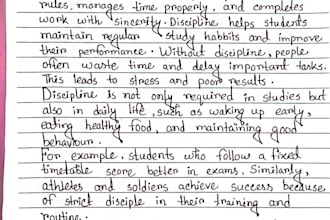 rules, manages time properly, and completes
work with sincerity. Discipline helps students
maintain regular study habbits and improve
their performance. Without discipline, people
often waste time and delay important tasks.
This leads to stress and poor results.
Discipline is not only required in studies but
also in daily life, such as waking up early,
eating healthy food, and maintaining good
behaviour.
For example, students who follow a fixed
timetable score better in exams. Similarly,
athletes and soldiers achieve success because
of strict disciple in their training and
routine.